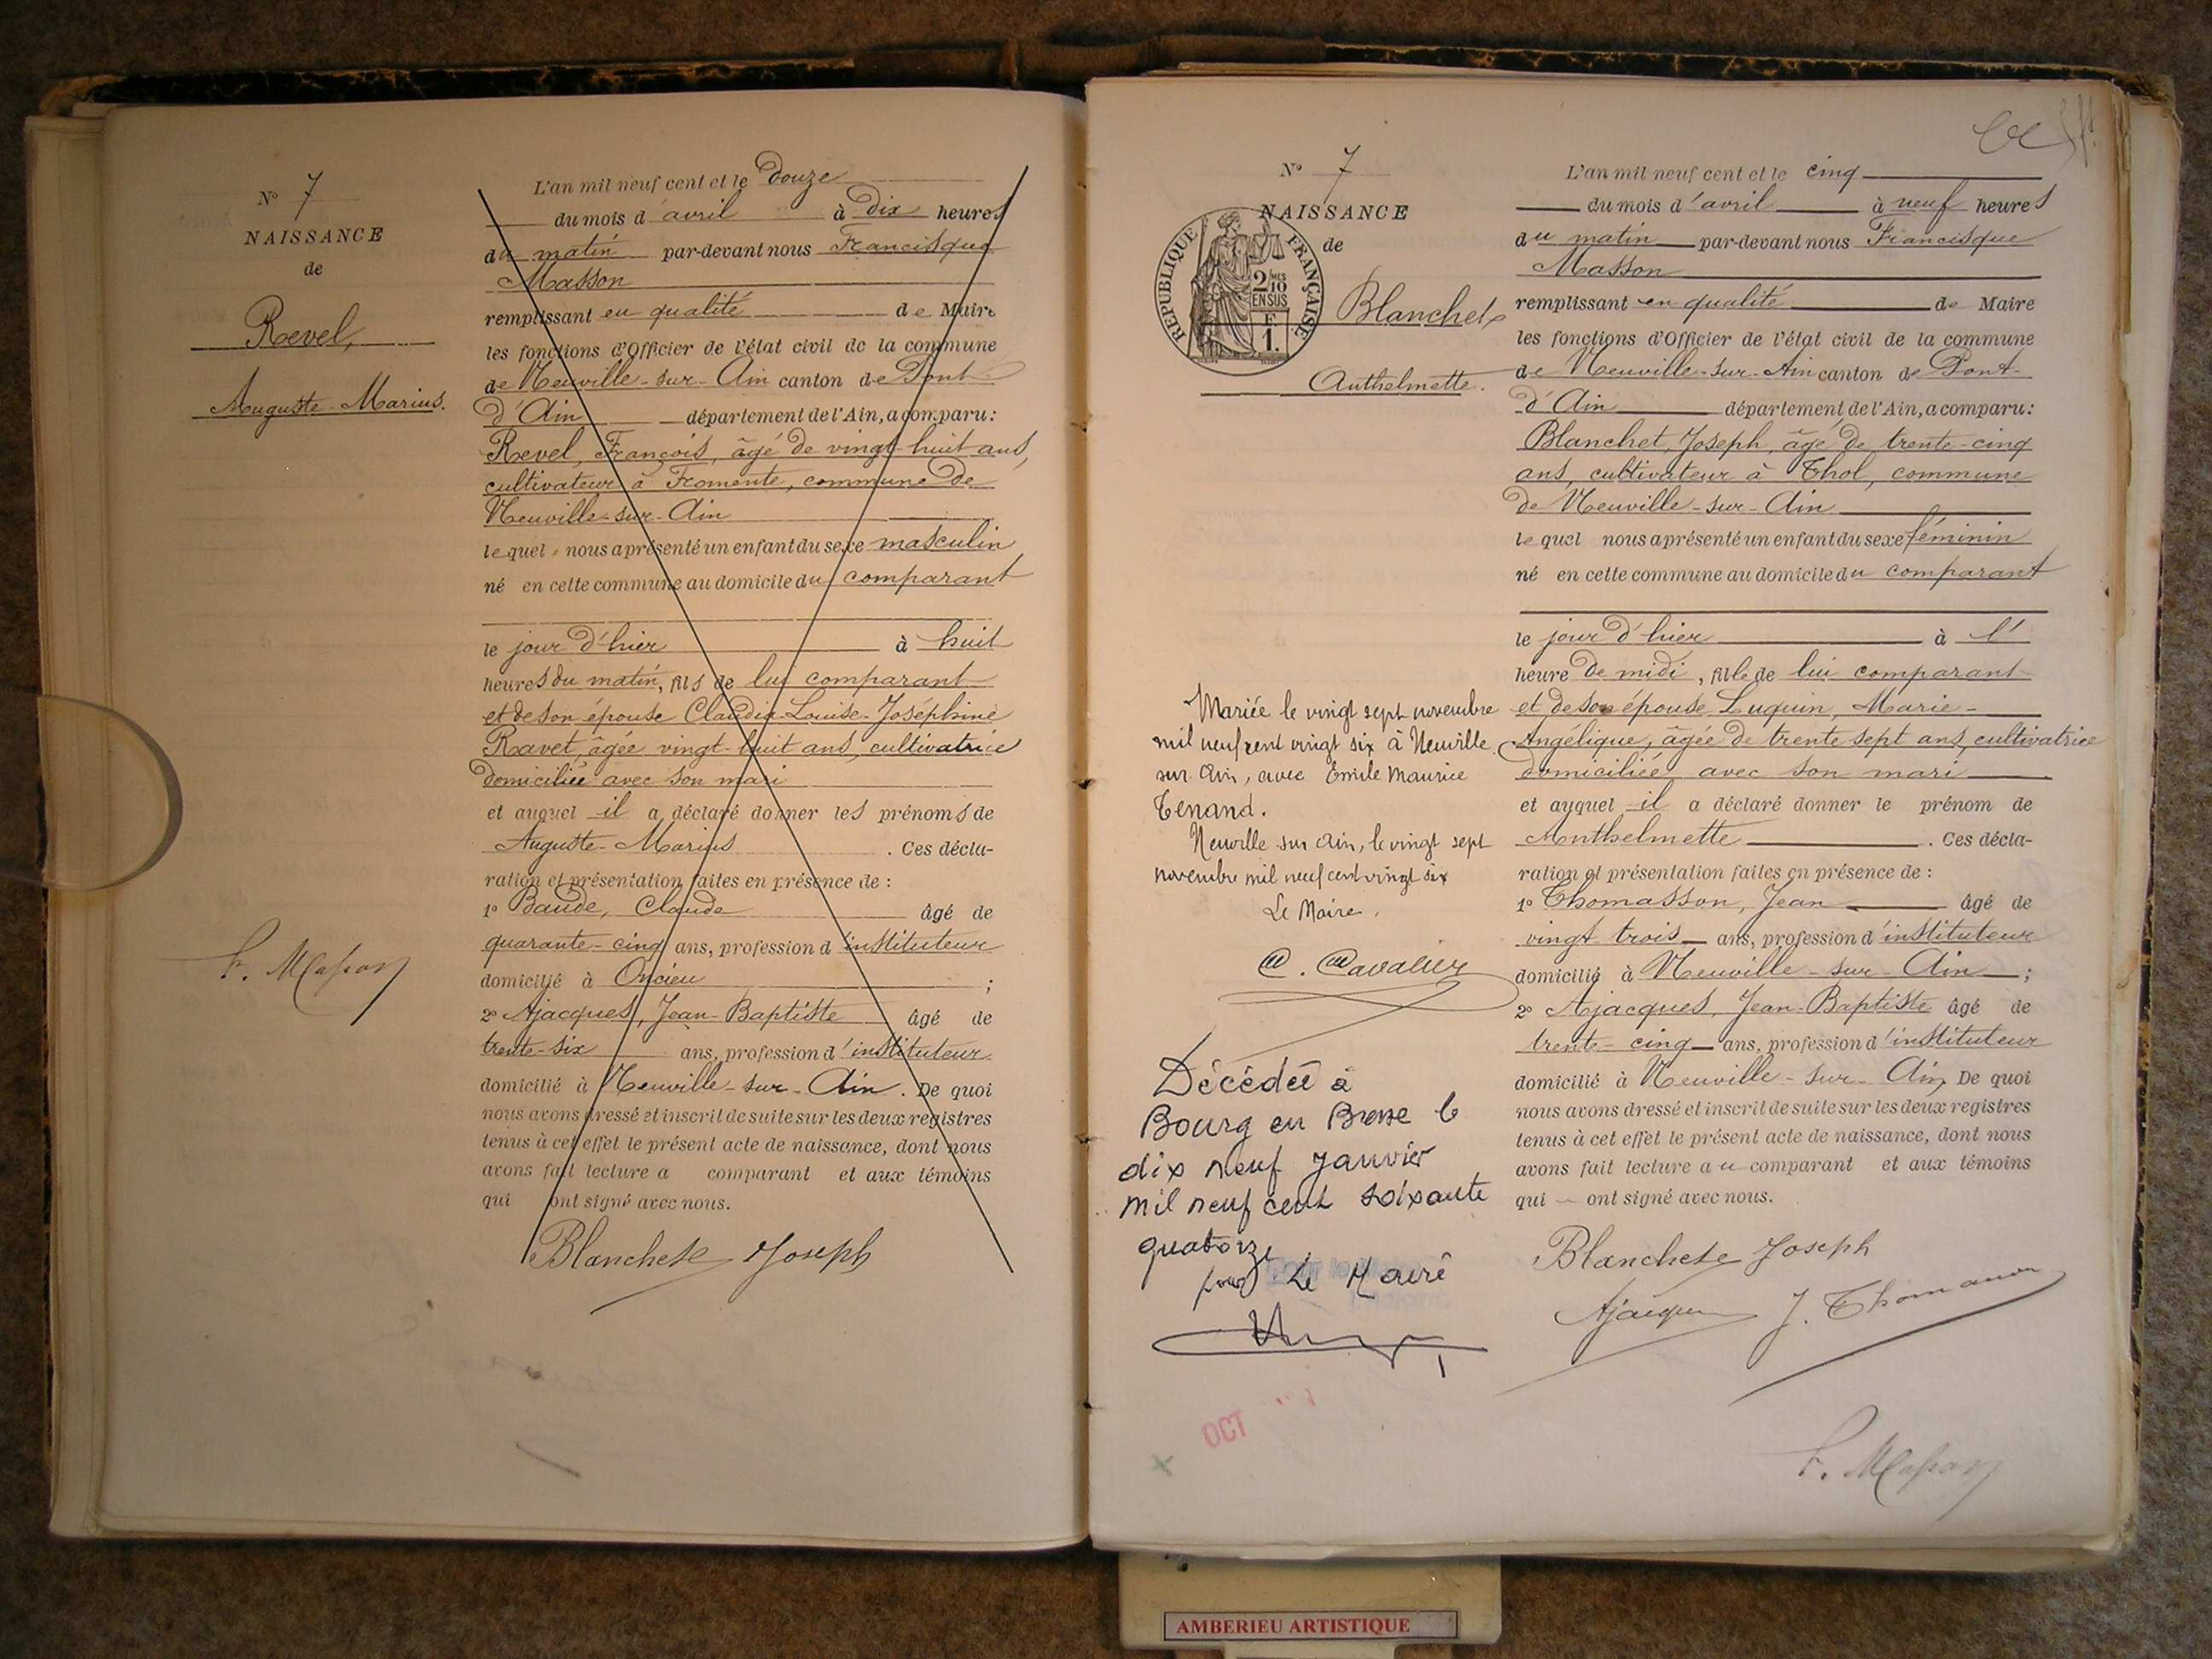 Nº 7
NAISSANCE
de
Revel,
Auguste-Marius.
F. Masson
L'an mil neuf cent et le Douze
du mois d'avril à dix heures
du matin par-devant nous Francisque
Masson
remplissant en qualité de Maire
les fonctions d'Officier de l'état civil de la commune
de Neuville-sur-Ain canton de Pont
d'Ain département de l'Ain, a comparu:
Revel, François, âgé de vingt-huit ans,
cultivateur à Fromente, commune de
Neuville-sur-Ain
lequel nous a présenté un enfant du sexe masculin
né en cette commune au domicile du comparant
le jour d'hier à huit
heures du matin, fils de lui comparant
et de son épouse Claudia-Louise-Joséphine
Ravet, âgée vingt-huit ans, cultivatrice
domiciliée avec son mari
et auquel il a déclaré donner les prénoms de
Auguste-Marius. Ces décla-
ration et présentation faites en présence de :
1º Baude, Claude âgé de
quarante-cinq ans, profession d'instituteur
domicilié à Oncieu ;
2º Ajacques, Jean-Baptiste âgé de
trente-six ans, profession d'instituteur
domicilié à Neuville-sur-Ain. De quoi
nous avons dressé et inscrit de suite sur les deux registres
tenus à cet effet le présent acte de naissance, dont nous
avons fait lecture a comparant et aux témoins
qui ont signé avec nous.
Blanchet Joseph
Nº 7
NAISSANCE
de
RÉPUBLIQUE FRANÇAISE
2/10 MES
EN SUS
F
1.
Blanchet
Anthelmette.
Mariée le vingt sept novembre
mil neuf cent vingt six à Neuville
sur Ain, avec Emile Maurice
Tenand.
Neuville sur Ain, le vingt sept
novembre mil neuf cent vingt six
Le Maire.
C. Cavalier
Décédée à
Bourg en Bresse le
dix neuf janvier
mil neuf cent soixante
quatorze
pour Le Maire
OCT
L'an mil neuf cent et le cinq
du mois d'avril à neuf heures
du matin par-devant nous Francisque
Masson
remplissant en qualité de Maire
les fonctions d'Officier de l'état civil de la commune
de Neuville-sur-Ain canton de Pont-
d'Ain département de l'Ain, a comparu:
Blanchet, Joseph, âgé de trente-cinq
ans, cultivateur à Thol, commune
de Neuville-sur-Ain
lequel nous a présenté un enfant du sexe féminin
né en cette commune au domicile du comparant
le jour d'hier à l'
heure de midi, fille de lui comparant
et de son épouse Luquin, Marie-
Angélique, âgée de trente sept ans, cultivatrice
domiciliée avec son mari
et auquel il a déclaré donner le prénom de
Anthelmette. Ces décla-
ration et présentation faites en présence de :
1º Thomasson, Jean âgé de
vingt trois ans, profession d'instituteur
domicilié à Neuville-sur-Ain ;
2º Ajacques, Jean-Baptiste âgé de
trente-cinq ans, profession d'instituteur
domicilié à Neuville-sur-Ain, De quoi
nous avons dressé et inscrit de suite sur les deux registres
tenus à cet effet le présent acte de naissance, dont nous
avons fait lecture au comparant et aux témoins
qui ont signé avec nous.
Blanchet Joseph
Ajacques J. Thomasson
F. Masson
AMBERIEU ARTISTIQUE